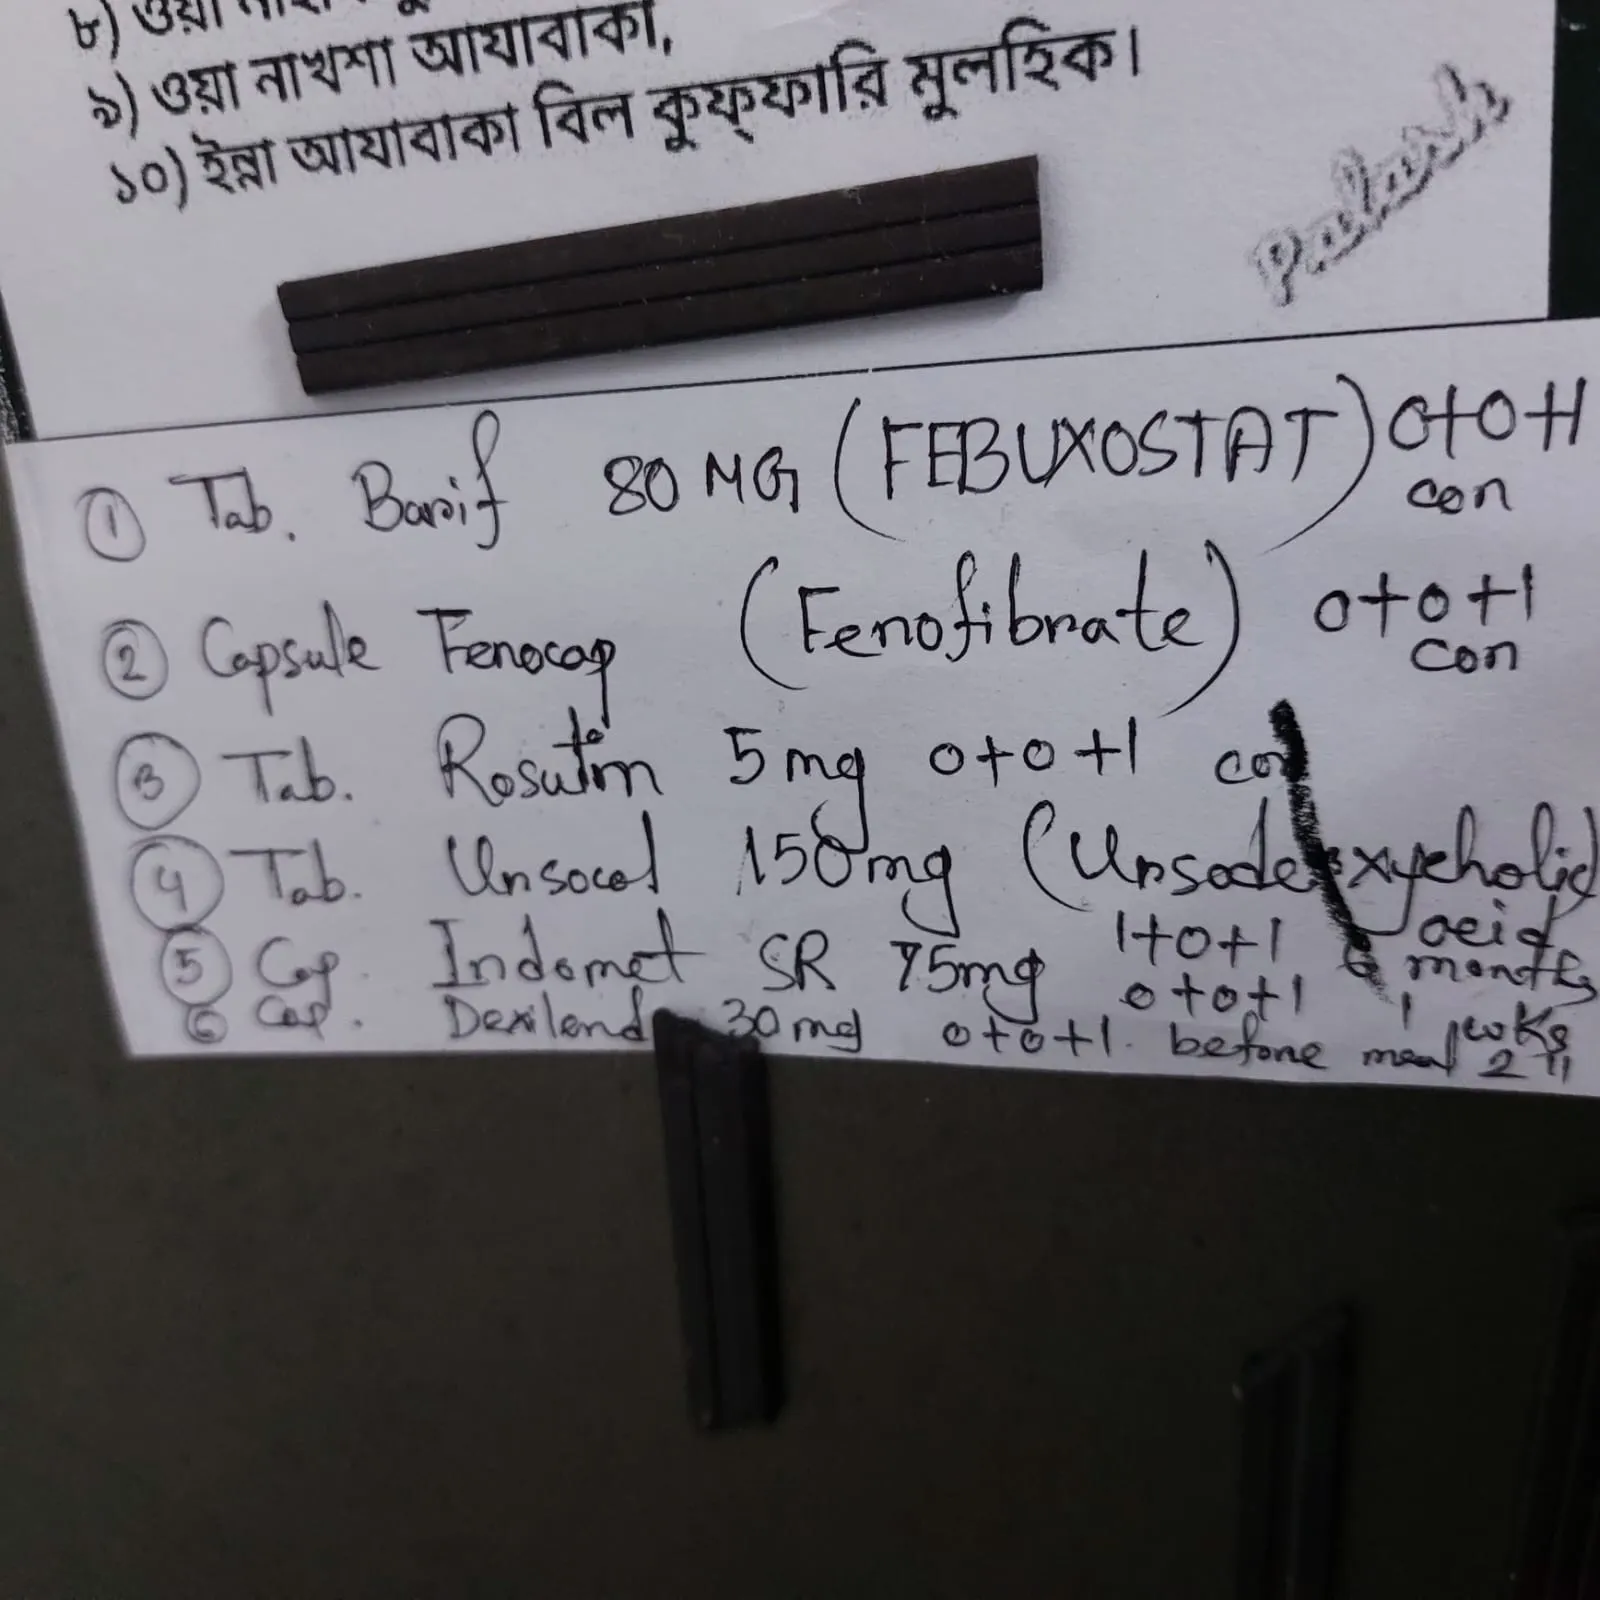 ৮) ওয়া
৯) ওয়া নাখশা আযাবাকা,
১০) ইন্না আযাবাকা বিল কুফ্ফারি মুলহিক।
① Tab. Barif 80 MG (FEBUXOSTAT) 0+0+1
con
② Capsule Fenocap (Fenofibrate) 0+0+1
con
③ Tab. Rosutin 5 mg 0+0+1 con
④ Tab. Ursocol 150mg (Ursodeoxycholic
acid
1+0+1 6 months
⑤ Cap. Indomet SR 75mg 0+0+1 1 wks
⑥ Cap. Dexilend 30 mg 0+0+1. before meal 2 "